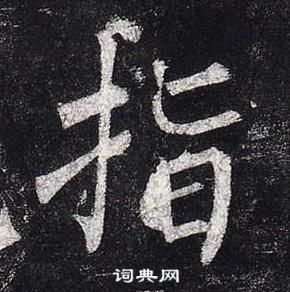 指
词典网